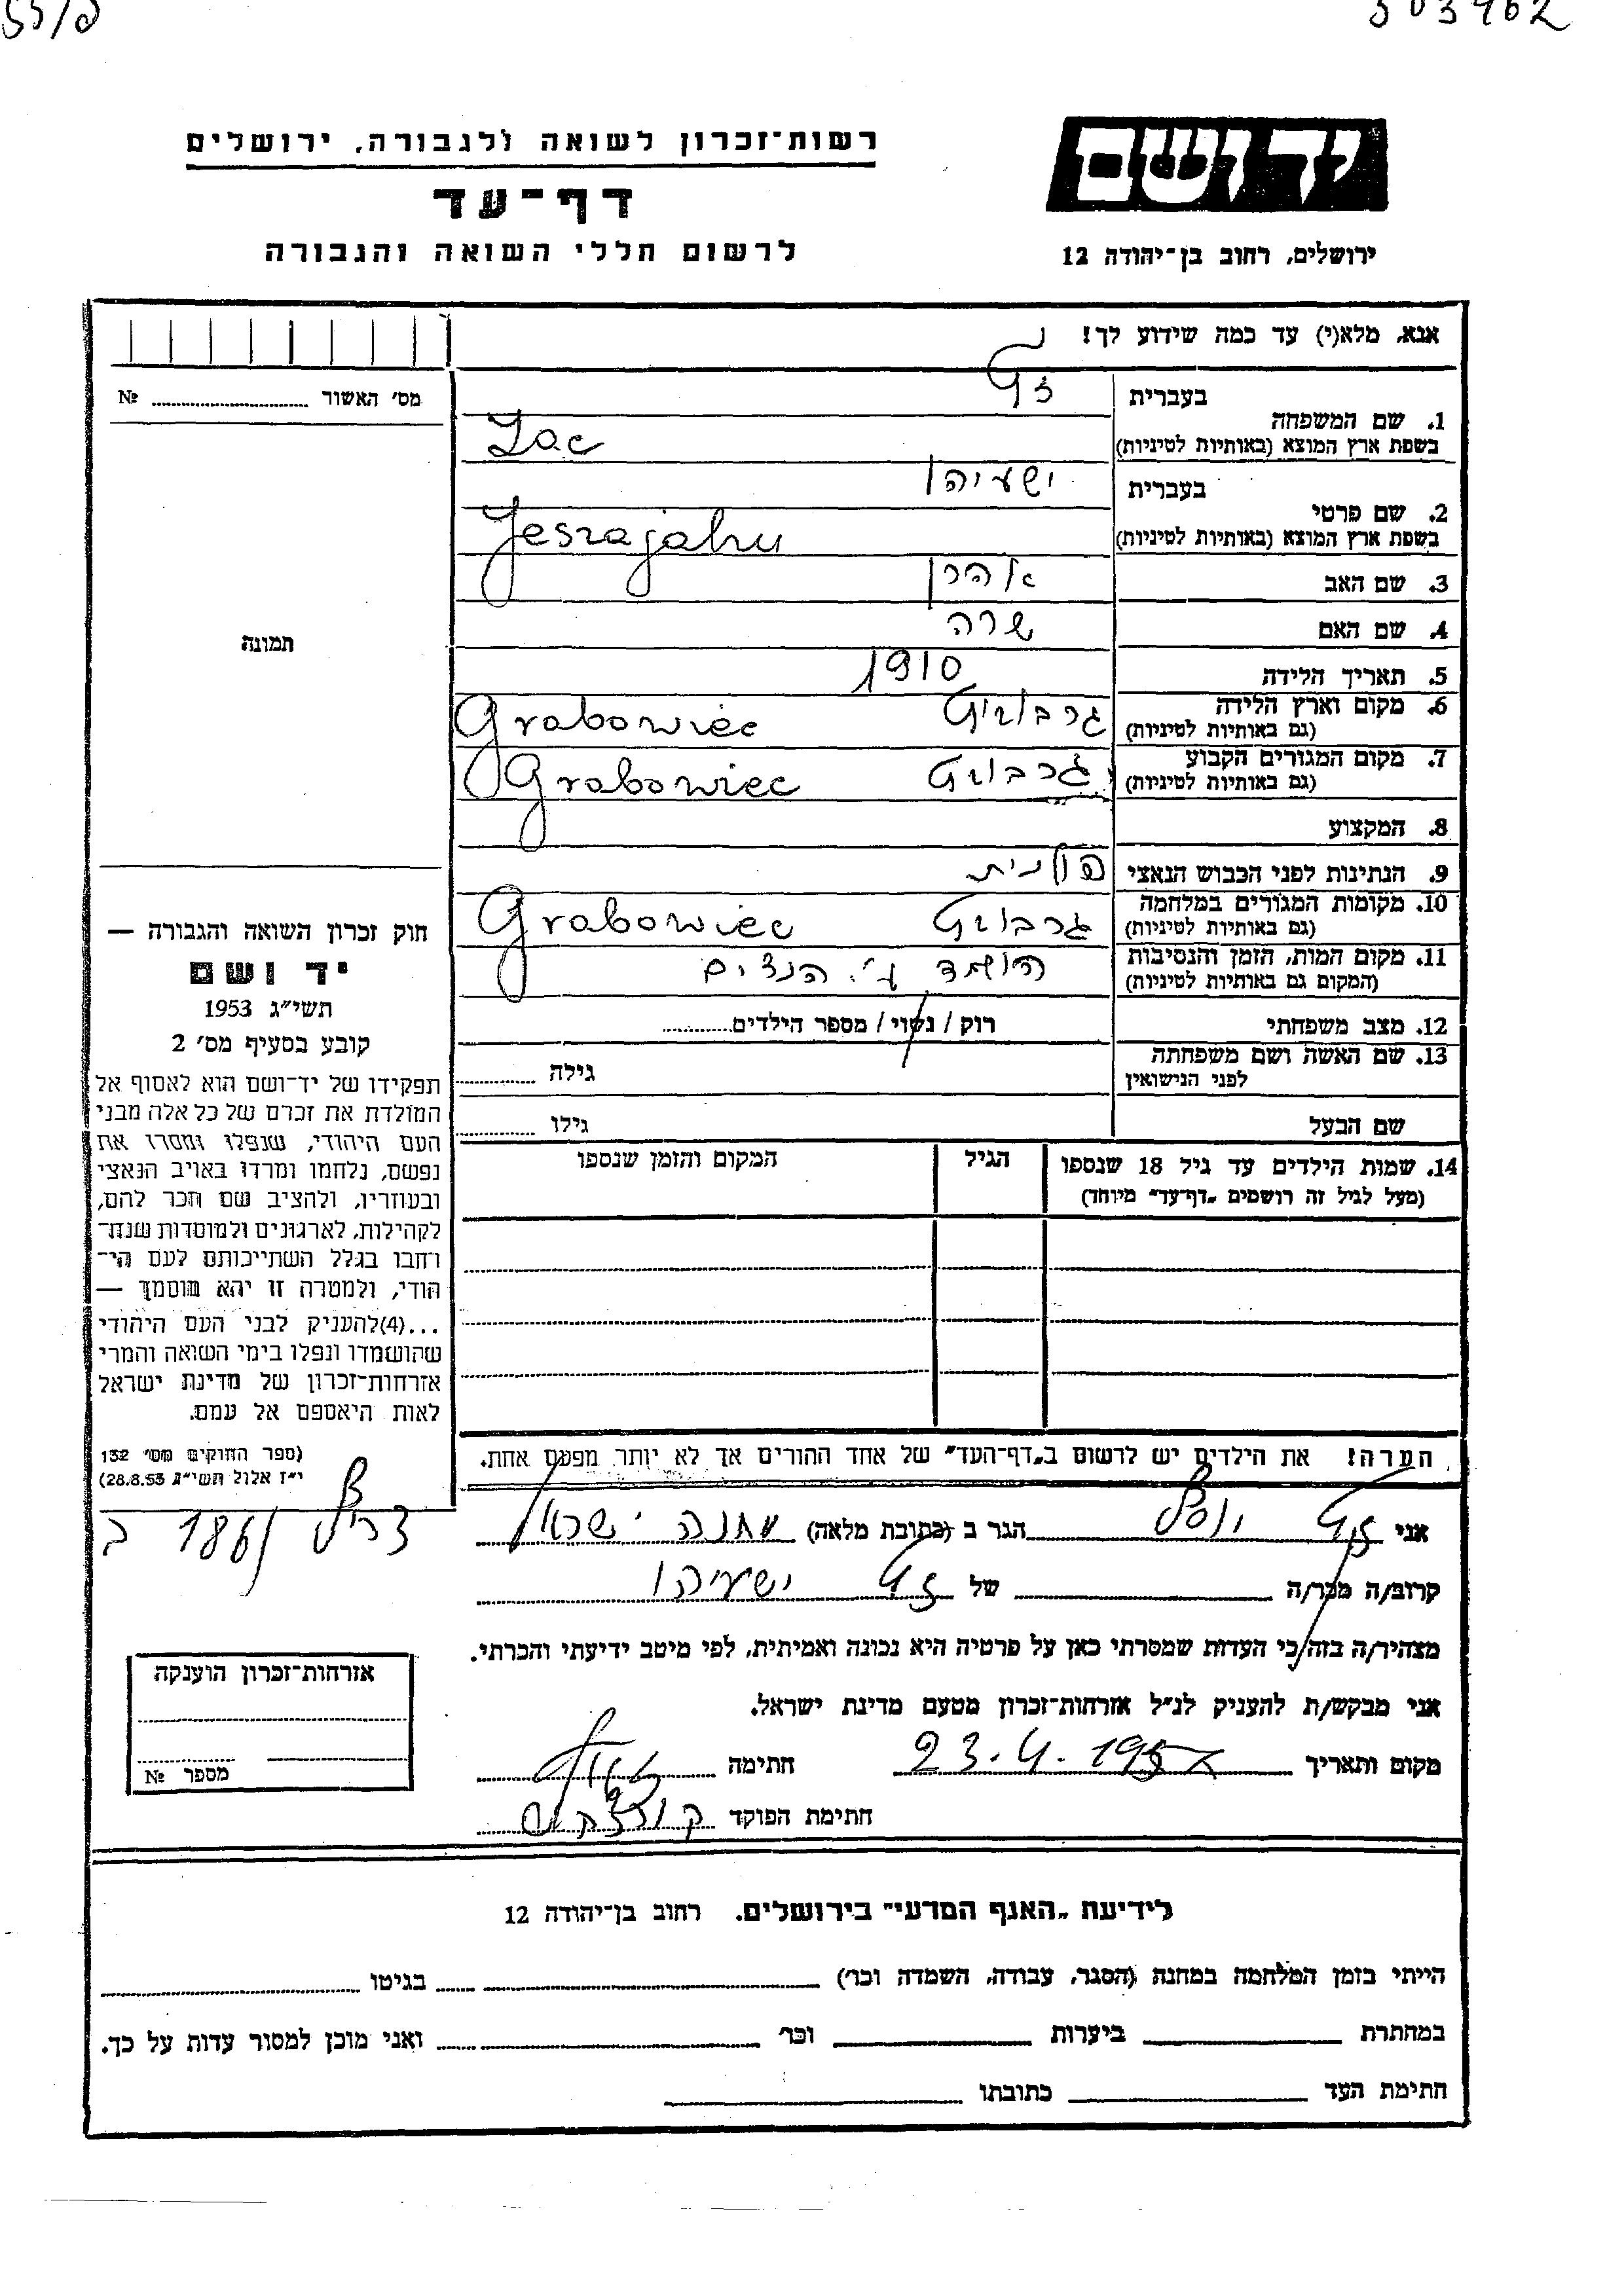 55/ס
303962
יד ושם
ירושלים, רחוב בן־יהודה 12
רשות־זכרון לשואה ולגבורה, ירושלים
דף־עד
לרשום חללי השואה והגבורה
אנא, מלא(י) עד כמה שידוע לך!
מס׳ האשור № ........
1. שם המשפחה
בעברית
זץ
בשפת ארץ המוצא (באותיות לטיניות)
Zac
2. שם פרטי
בעברית
ישעיהו
בשפת ארץ המוצא (באותיות לטיניות)
Jeszajahu
3. שם האב אהרן
4. שם האם שרה
5. תאריך הלידה 1910
6. מקום וארץ הלידה גרבוויץ Grabowiec
(גם באותיות לטיניות)
7. מקום המגורים הקבוע גרבוויץ Grabowiec
(גם באותיות לטיניות)
8. המקצוע
9. הנתינות לפני הכבוש הנאצי פולנית
10. מקומות המגורים במלחמה גרבוויץ Grabowiec
(גם באותיות לטיניות)
11. מקום המות, הזמן והנסיבות הושמד ע״י הנצים
(המקום גם באותיות לטיניות)
12. מצב משפחתי רוק / נשוי / מספר הילדים........
13. שם האשה ושם משפחתה
לפני הנישואין
גילה ........
שם הבעל גילו ........
14. שמות הילדים עד גיל 18 שנספו
(מעל לגיל זה רושמים „דף־עד״ מיוחד)
הגיל
המקום והזמן שנספו
הערה! את הילדים יש לרשום ב„דף־העד״ של אחד ההורים אך לא יותר מפעם אחת.
תמונה
חוק זכרון השואה והגבורה —
יד ושם
תשי״ג 1953
קובע בסעיף מס׳ 2
תפקידו של יד־ושם הוא לאסוף אל
המולדת את זכרם של כל אלה מבני
העם היהודי, שנפלו ומסרו את
נפשם, נלחמו ומרדו באויב הנאצי
ובעוזריו, ולהציב שם וזכר להם,
לקהילות, לארגונים ולמוסדות שנח־
רחבו בגלל השתייכותם לעם הי־
הודי, ולמטרה זו יהא מוסמך —
...(4)להעניק לבני העם היהודי
שהושמדו ונפלו בימי השואה והמרי
אזרחות־זכרון של מדינת ישראל
לאות היאספם אל עמם.
(ספר החוקים מס׳ 132
י״ז אלול תשי״ג 28.8.53)
אני זץ יוסף הגר ב (כתובת מלאה) מחנה ישראל צריף 186/ ב
קרוב/ה מכר/ה של זץ ישעיהו
מצהיר/ה בזה כי העדות שמסרתי כאן על פרטיה היא נכונה ואמיתית, לפי מיטב ידיעתי והכרתי.
אני מבקש/ת להעניק לנ״ל אזרחות־זכרון מטעם מדינת ישראל.
מקום ותאריך 23.4.195 חתימה
חתימת הפוקד
אזרחות־זכרון הוענקה
מספר №
לידיעת „האגף המדעי״ בירושלים, רחוב בן־יהודה 12
הייתי בזמן המלחמה במחנה (הסגר, עבודה, השמדה וכו׳) בגיטו
במחתרת ביערות וכו׳ ואני מוכן למסור עדות על כך.
חתימת העד כתובתו